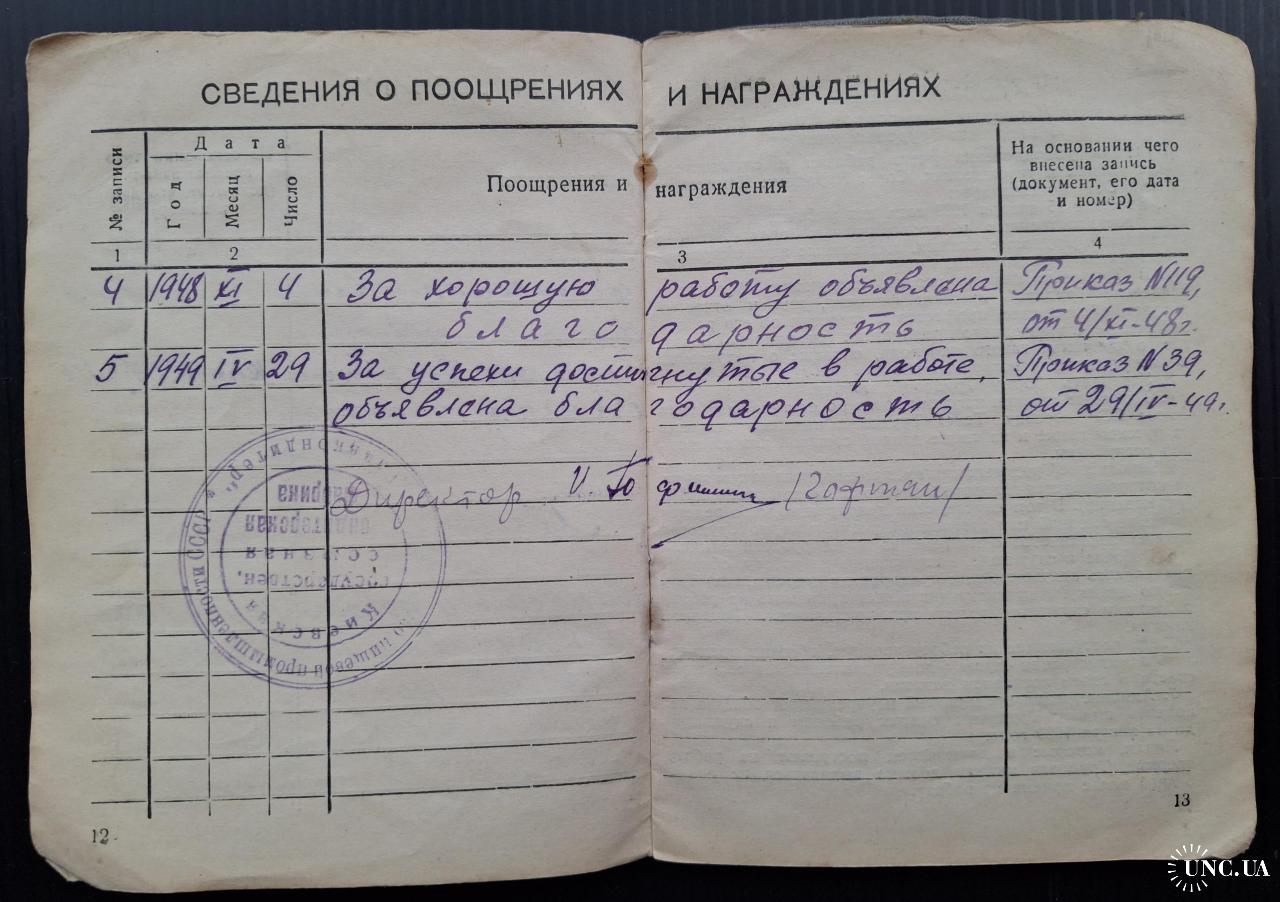 СВЕДЕНИЯ О ПООЩРЕНИЯХ И НАГРАЖДЕНИЯХ
№ записи
Дата
Год
Месяц
Число
Поощрения и награждения
На основании чего
внесена запись
(документ, его дата
и номер)
1 2 3 4
4 1948 XI 4 За хорошую работу объявлена Приказ №119,
благодарность от 4/XI-48г.
5 1949 IV 29 За успехи достигнутые в работе, Приказ №39,
объявлена благодарность от 29/IV-49г.
Директор
пищевой промышленности СССР
Киевская
государствен.
союзная
12
13
UNC.UA